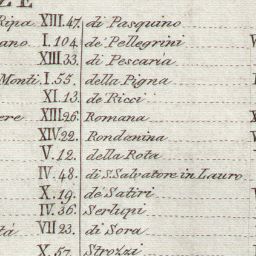 ZE
Ripa XIII.47. di Pasquino
ano I.104. de' Pellegrini
XIII.33. di Pescaria
Monti I.55. della Pigna
XI.13. de Ricci
ere XIII.26. Romana
XIV.22. Rondanina
V.12. della Rota
IV.48. di S. Salvatore in Lauro
X.19. de' Satiri
IV.36. Serlupi
tà VII.23. di Sora
X.57. Strozzi